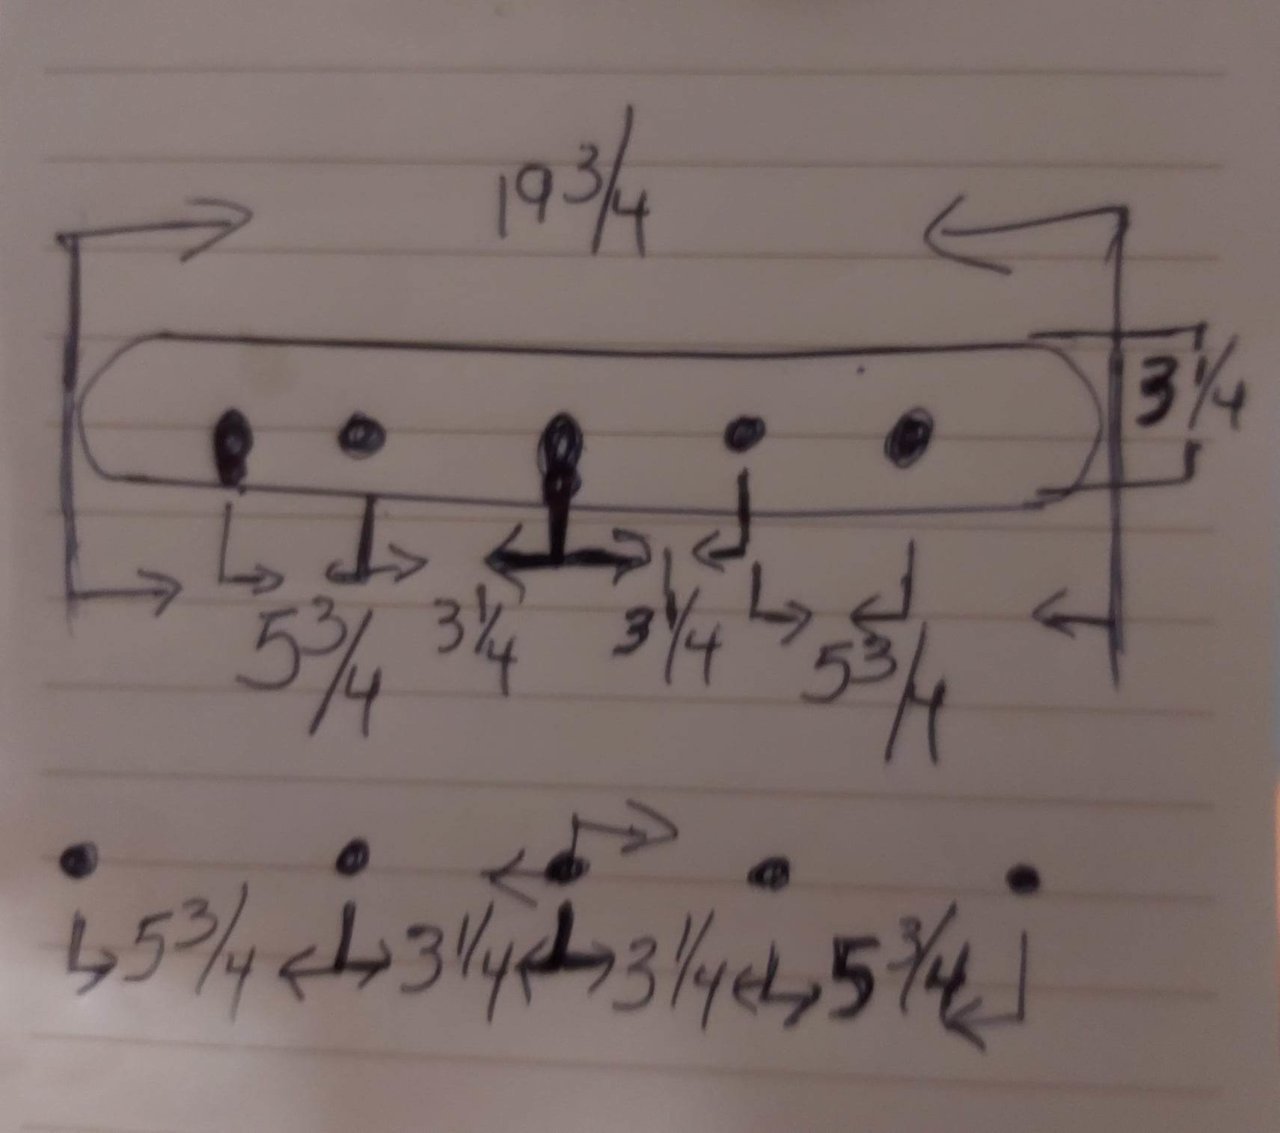 19 3/4
3 1/4
5 3/4 3 1/4 3 1/4 5 3/4
5 3/4 3 1/4 3 1/4 5 3/4